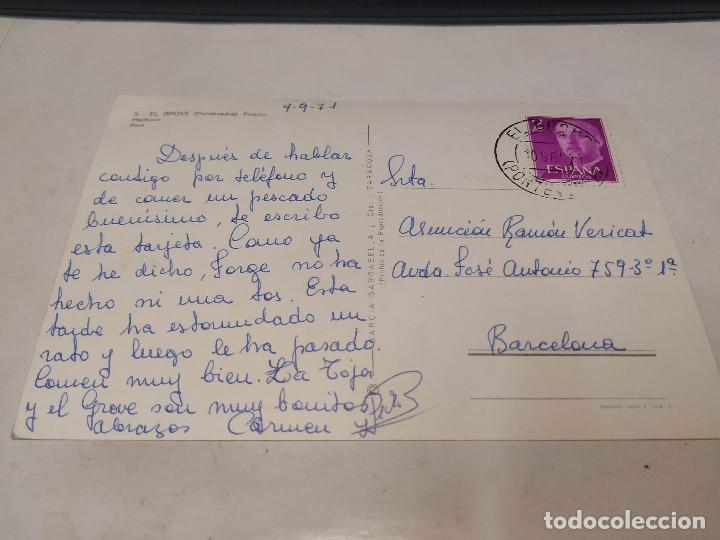 9-9-71
3. - EL GROVE (Pontevedra) Puerto
Harbour
Port
Después de hablar
contigo por teléfono y
de comer un pescado
buenísimo, te escribo
esta tarjeta. Como ya
te he dicho, Jorge no ha
hecho ni una tos. Esta
tarde ha estornudado un
rato y luego le ha pasado.
Comen muy bien. La Toja
y el Grove son muy bonitos
abrazos Carmen
GARCIA GARRABELLA y Cia. ZARAGOZA
(Prohibida la Reproducción)
2 PTS
ESPAÑA
CORREOS
EL GROVE
(PONTEVEDRA)
Srta.
Asunción Ramón Vericat
Avda. José Antonio 759-3º 1ª
Barcelona
todocoleccion